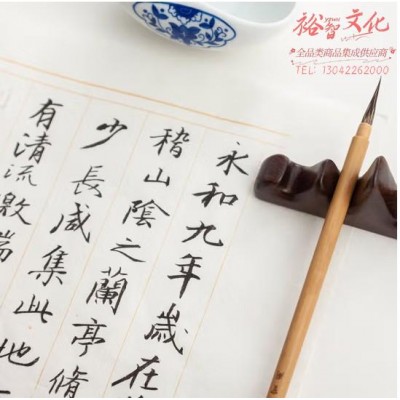 裕智文化
全品类商品集成供应商
TEL: 13042262000
永和九年歲在
稽山陰之蘭亭脩
少長咸集此地
有清流激湍